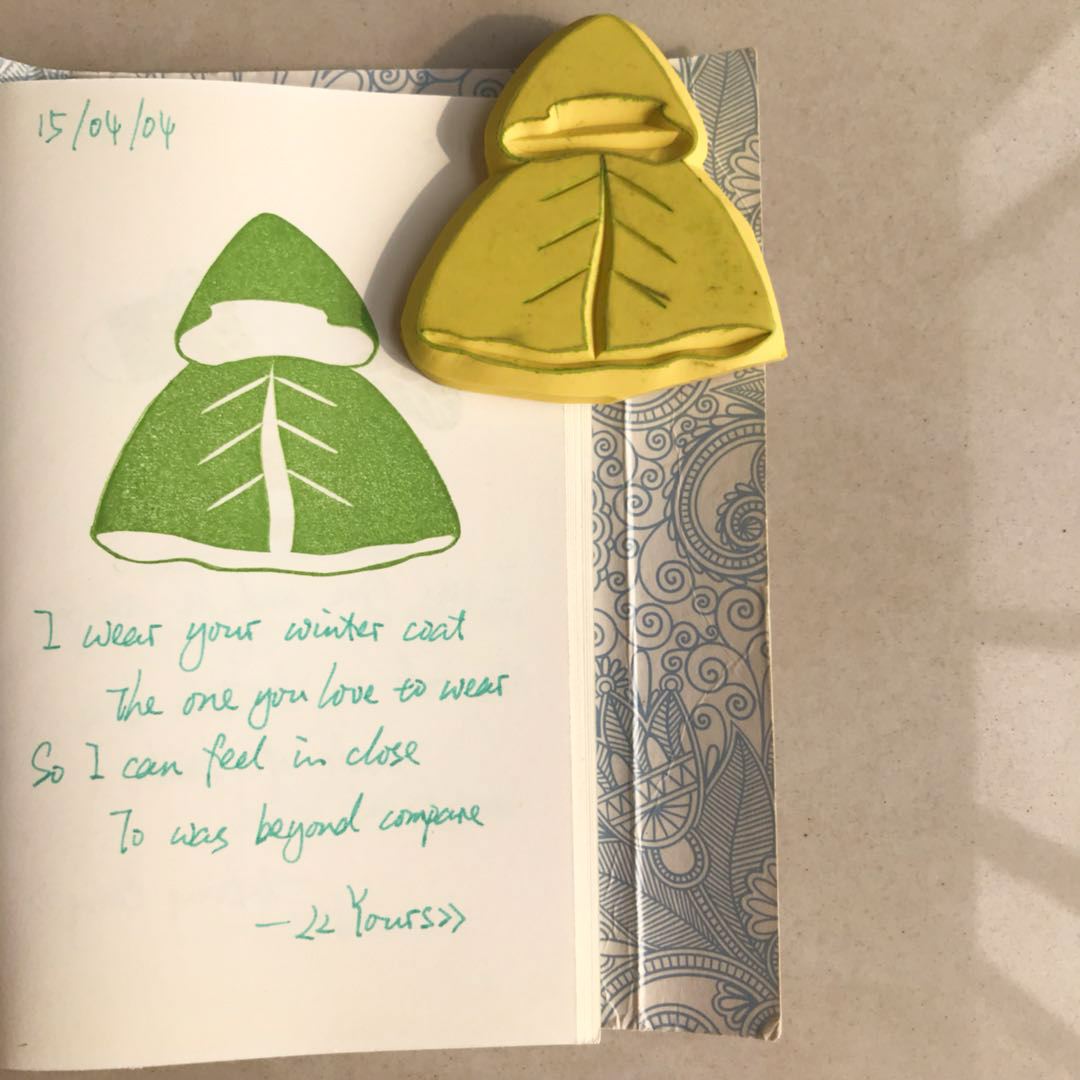 15/04/04
I wear your winter coat
The one you love to wear
So I can feel in close
To was beyond compare
—<<Yours>>